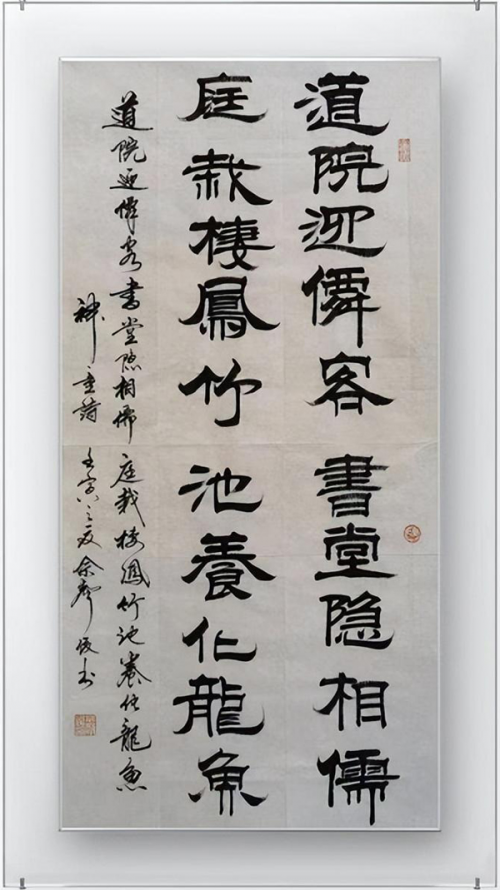 道院迎僊客 書堂隐相儒
庭栽棲鳳竹 池養化龍魚
道院迎僊客 書堂隐相儒 庭栽棲鳳竹 池養化龍魚
神童詩 壬寅之夏 余 书